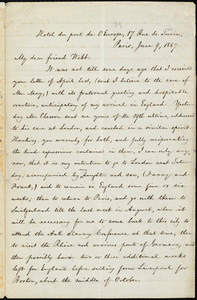 Hotel du port de l'Europe, 87 Rue de Turin,
Paris, June 9, 1867.
My dear friend Webb:
It was not till some days ago that I received
your letter of April last, (sent I believe to the care of
Mr. May,) with its proffered greeting and hospitable
overture, anticipating my arrival in England. Yester-
day Mr. Chesson sent me yours of the 29th ultimo, addressed
to his care at London, and couched in a similar spirit.
Thanking you warmly for both, and fully reciprocating the
kind expressions contained in them, I can only say,
that it is now my intention to go to London next Satur-
day, accompanied by daughter and son, (Fanny and
Frank,) and to remain in England some four or six
weeks, then to return to Paris, and go with them to
Switzerland till the last week in August, when it
will be necessary for me to come back to this city to
attend the Anti-Slavery Conference at that time; then
to visit the Rhine and various parts of Germany, and
then possibly have two or three additional weeks
left for England before sailing from Liverpool for
Boston, about the middle of October.